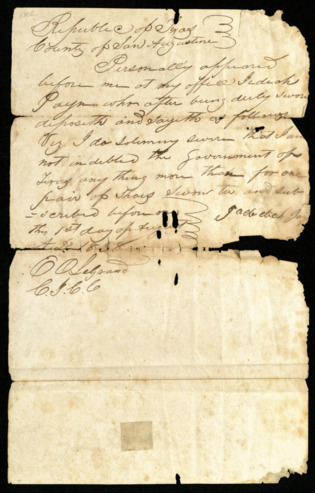 Republic of Texas
County of San Augustine
Personally appeared
before me at my office Jedediah
Payne who after being duly sworn
deposeth and sayeth as follows
Viz I do solemny swear that I am
not in debted the Government of
Texas any thing more than for one
pair of Shoes Sworn to and sub-
=scribed before
this 1st day of
O O Legrand
C.J.C.C